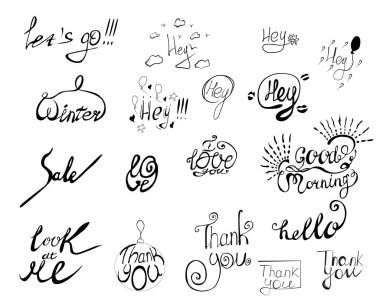 Let's go!!!
Hey
Hey
Hey
Winter
Hey!!!
Hey
Hey
Sale
Love
I
love
you
Good
Morning
look
at
Me
Thank
you
Thank
you
hello
Thank
you
Thank
you